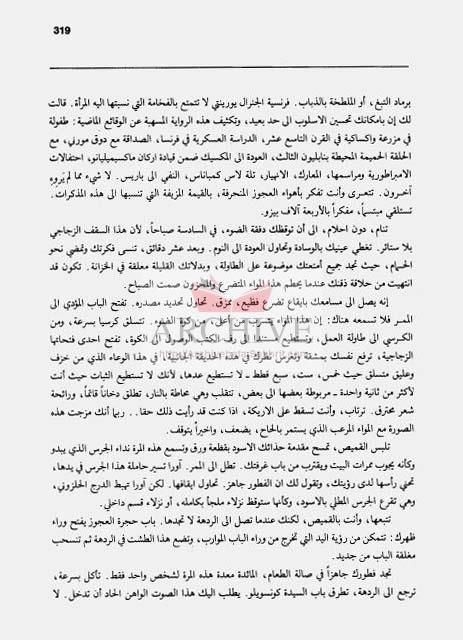 319
برماد التبغ، أو الملطخة بالذباب. فرنسية الجنرال يورينتي لا تتمتع بالفخامة التي نسبتها اليه المرأة. قالت
لك إن بامكانك تحسين الاسلوب الى حد بعيد، وتكثيف هذه الرواية المسهبة عن الوقائع الماضية: طفولة
في مزرعة واكساكية في القرن التاسع عشر، الدراسة العسكرية في فرنسا، الصداقة مع دوق مورني، مع
الحلقة الحميمة المحيطة بنابليون الثالث، العودة الى المكسيك ضمن قيادة اركان ماكسيميليانو، احتفالات
الامبراطورية ومراسمها، المعارك، الانهيار، تلة لاس كمباناس، النفي الى باريس. لا شيء مما لم يَروهِ
آخرون. تتعرى وأنت تفكر بأهواء العجوز المنحرفة، بالقيمة المزيفة التي تنسبها الى هذه المذكرات.
تستلقي مبتسماً، مفكراً بالأربعة آلاف بيزو.
تنام، دون احلام، الى أن توقظك دفقة الضوء، في السادسة صباحاً، لأن هذا السقف الزجاجي
بلا ستائر. تغطي عينيك بالوسادة وتحاول العودة الى النوم. وبعد عشر دقائق، تنسى فكرتك وتمضي نحو
الحمام، حيث تجد جميع أمتعتك موضوعة على الطاولة، وبدلاتك القليلة معلقة في الخزانة. تكون قد
انتهيت من حلاقة ذقنك عندما يحطم هذا المواء المتضرع والمحزون صمت الصباح.
إنه يصل الى مسامعك بايقاع تضرع فظيع، ممزق. تحاول تحديد مصدره. تفتح الباب المؤدي الى
الممر فلا تسمعه هناك: إن هذا المواء يتسرب من أعلى، من كوة الضوء. تتسلق كرسيا بسرعة، ومن
الكرسي الى طاولة العمل، وتستطيع مستندا الى رف الكتب الوصول الى الكوة، تفتح احدى فتحاتها
الزجاجية، ترفع نفسك بمشقة وتغرس نظرك في هذه الحديقة الجانبية، في هذا الوعاء الذي من خزف
وعليق متسلق حيث خمس، ست، سبع قطط ـ لا تستطيع عدها، لأنك لا تستطيع الثبات حيث أنت
لأكثر من ثانية واحدة ـ مربوطة بعضها الى بعض، تتقلب وهي محاطة بالنار، تطلق دخاناً قاتماً، ورائحة
شعر محترق. ترتاب، وأنت تسقط على الاريكة، اذا كنت قد رأيت ذلك حقا.. ربما أنك مزجت هذه
الصورة مع المواء المرعب الذي يستمر بالحاح، يضعف، واخيراً يتوقف.
تلبس القميص، تمسح مقدمة حذائك الاسود بقطعة ورق وتسمع هذه المرة نداء الجرس الذي يبدو
وكأنه يجوب ممرات البيت ويقترب من باب غرفتك. تطل الى الممر. آورا تسير حاملة هذا الجرس في يدها،
تحني رأسها لدى رؤيتك، وتقول لك ان الفطور جاهز. تحاول ايقافها. لكن آورا تهبط الدرج الحلزوني،
وهي تقرع الجرس المطلي بالاسود، وكأنها ستوقظ نزلاء ملجأ بكامله، أو نزلاء قسم داخلي.
تتبعها، وأنت بالقميص، لكنك عندما تصل الى الردهة لا تجدها. باب حجرة العجوز يفتح وراء
ظهرك: تتمكن من رؤية اليد التي تخرج من وراء الباب الموارب، وتضع هذا الطشت في الردهة ثم تنسحب
مغلقة الباب من جديد.
تجد فطورك جاهزاً في صالة الطعام، المائدة معدة هذه المرة لشخص واحد فقط. تأكل بسرعة،
ترجع الى الردهة، تطرق باب السيدة كونسويلو. يطلب اليك هذا الصوت الواهن الحاد أن تدخل. لا
ARCHIVE